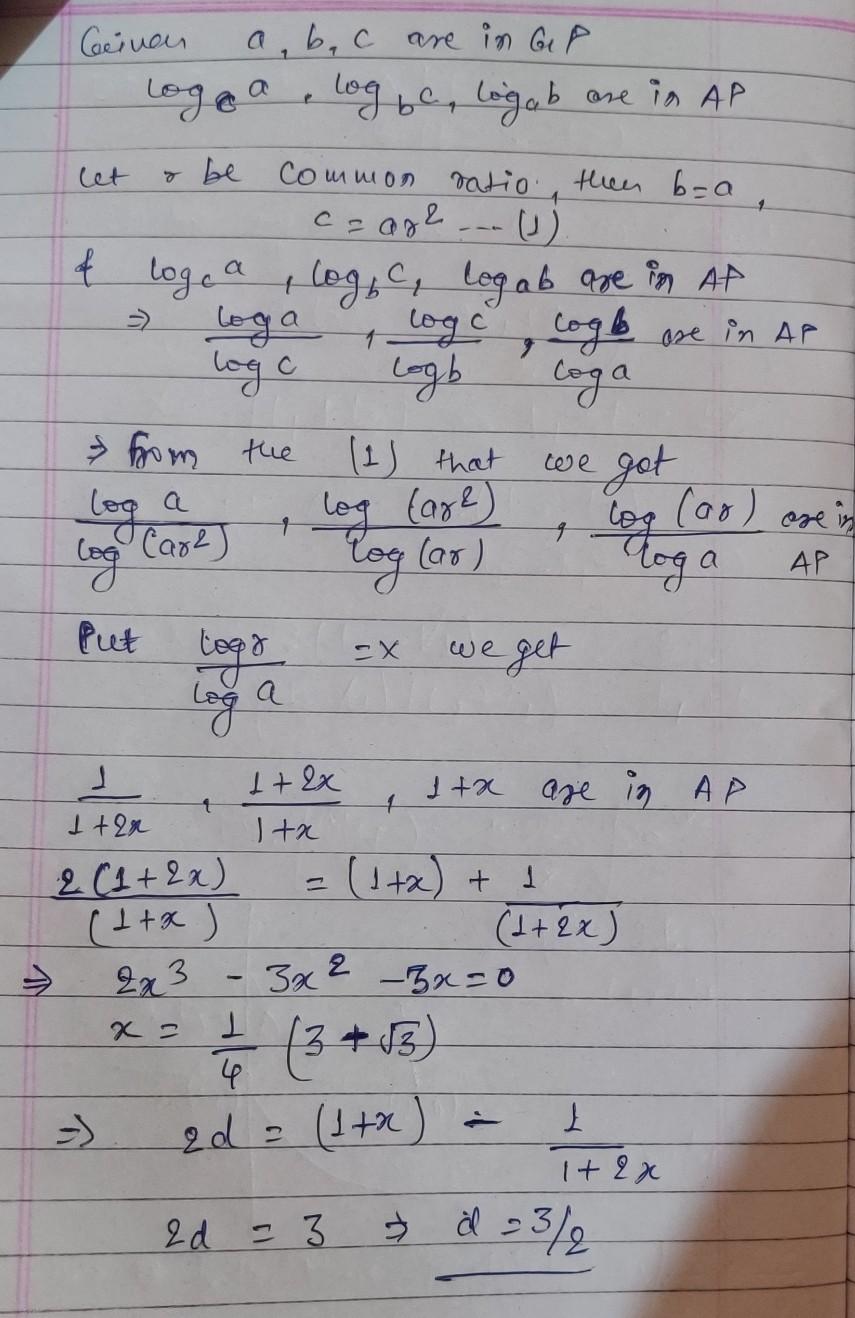 Geiven a, b, c are in G.P
log_c a, log_b c, log_a b are in AP
Let r be common ratio, then b=a,
c = ar² --- (1)
f log_c a, log_b c, log_a b are in AP
⇒ log a / log c, log c / log b, log b / log a are in AP
⇒ from the (1) that we get
log a / log (ar²), log (ar²) / log (ar), log (ar) / log a are in AP
Put log r / log a = x we get
1 / 1+2x, 1+2x / 1+x, 1+x are in AP
2(1+2x) / (1+x) = (1+x) + 1 / (1+2x)
⇒ 2x³ - 3x² - 3x = 0
x = 1/4 (3 + √3)
⇒ 2d = (1+x) ÷ 1 / 1+2x
2d = 3 ⇒ d = 3/2